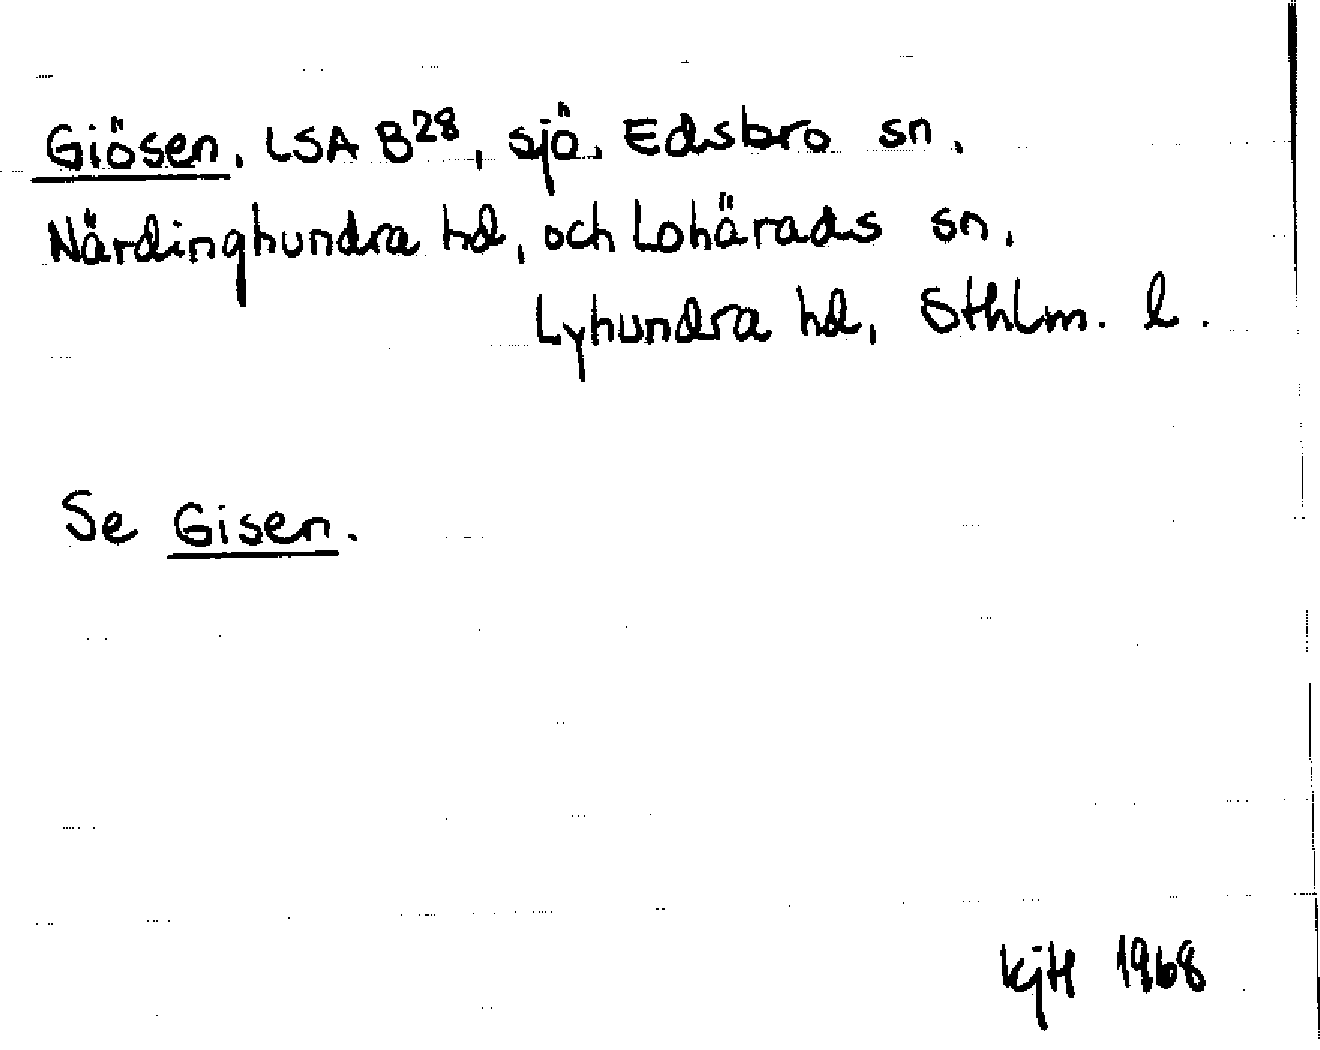 Giösen, LSA B28, sjö. Edsbro sn.
Närdinghundra hd, och Lohärads sn.
Lyhundra hd, Sthlm. l.
Se Gisen.
KjH 1968